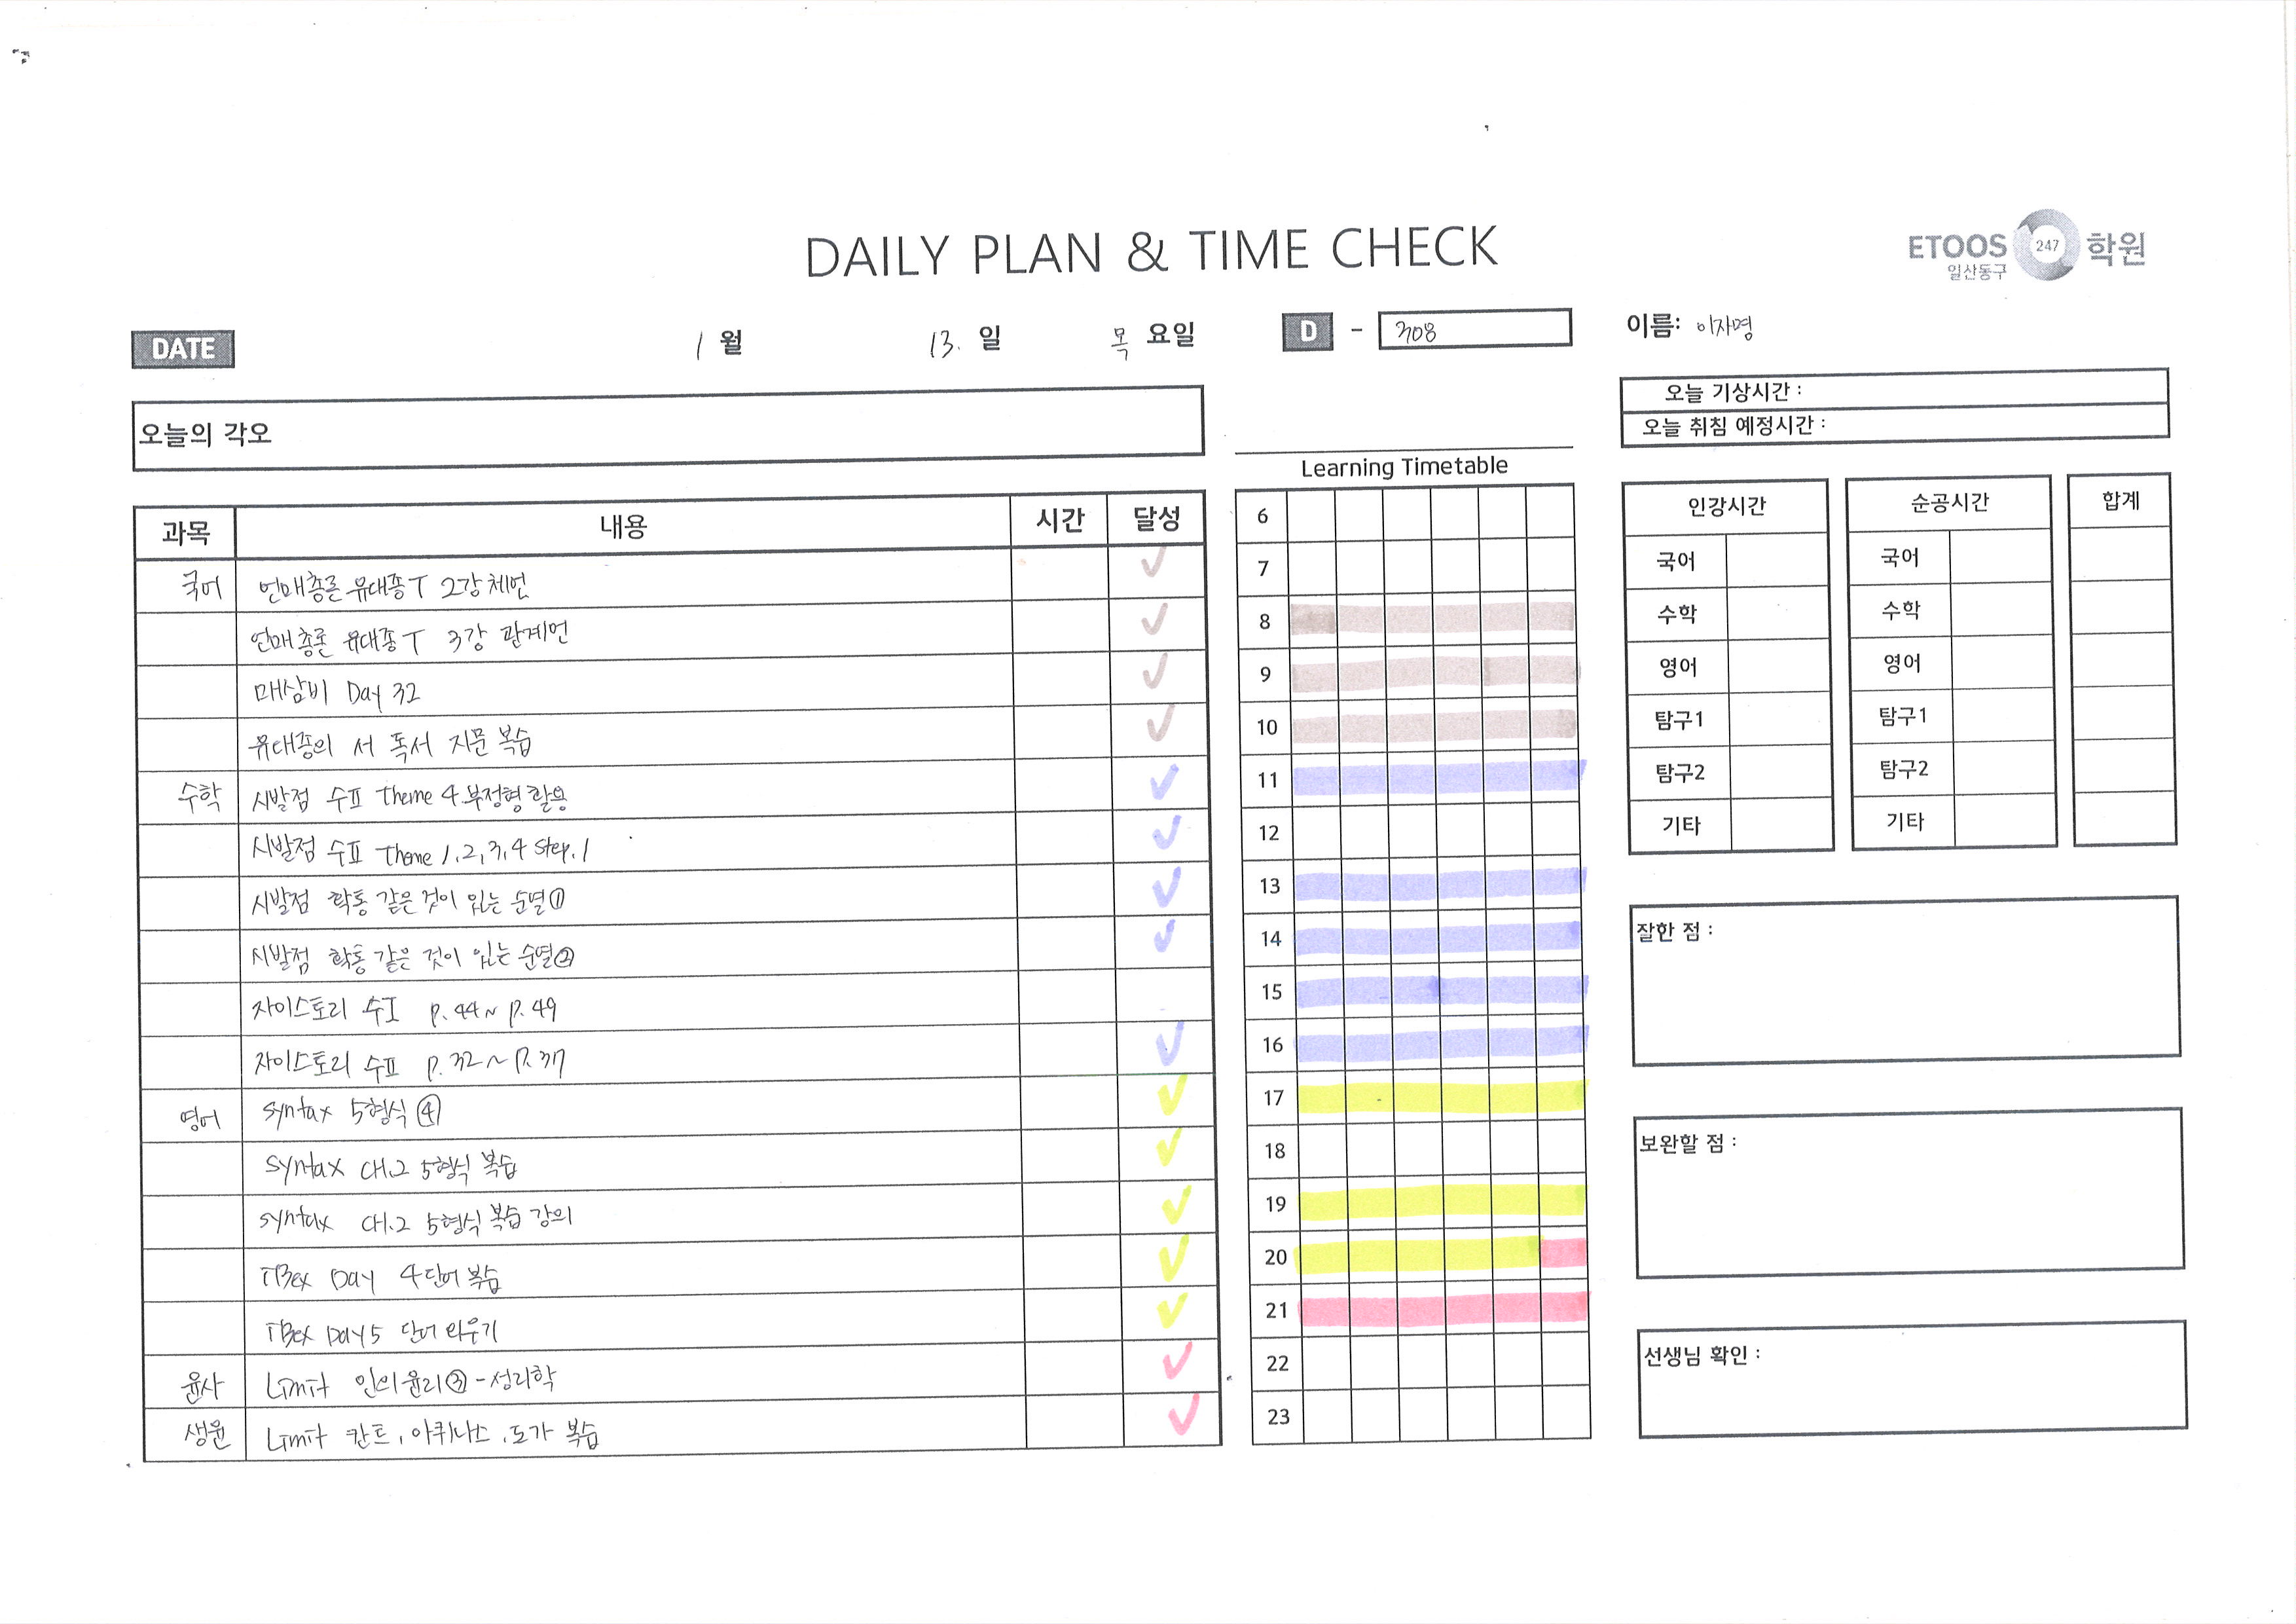 DAILY PLAN & TIME CHECK
ETOOS 247 학원
일산동구
DATE 1 월 13. 일 목 요일 D - 308 이름: 이자영
오늘의 각오
오늘 기상시간 :
오늘 취침 예정시간 :
과목 내용 시간 달성
국어 언매총론 유대종T 2강 체언
언매총론 유대종T 3강 관계언
매삼비 Day 32
유대종의 서 독서 지문 복습
수학 시발점 수Ⅱ Theme 4 부정형 활용
시발점 수Ⅱ Theme 1,2,3,4 Step.1
시발점 확통 같은 것이 있는 순열①
시발점 확통 같은 것이 있는 순열②
자이스토리 수Ⅰ P.44~P.49
자이스토리 수Ⅱ P.32~P.37
영어 syntax 5형식 ④
syntax CH.2 5형식 복습
syntax CH.2 5형식 복습 강의
Day 4 단어 복습
DAY5 단어 외우기
윤사 Limit 인의 윤리③ - 성리학
생윤 Limit 칸트, 아퀴나스, 도가 복습
Learning Timetable
6
7
8
9
10
11
12
13
14
15
16
17
18
19
20
21
22
23
인강시간 순공시간 합계
국어 국어
수학 수학
영어 영어
탐구1 탐구1
탐구2 탐구2
기타 기타
잘한 점 :
보완할 점 :
선생님 확인 :